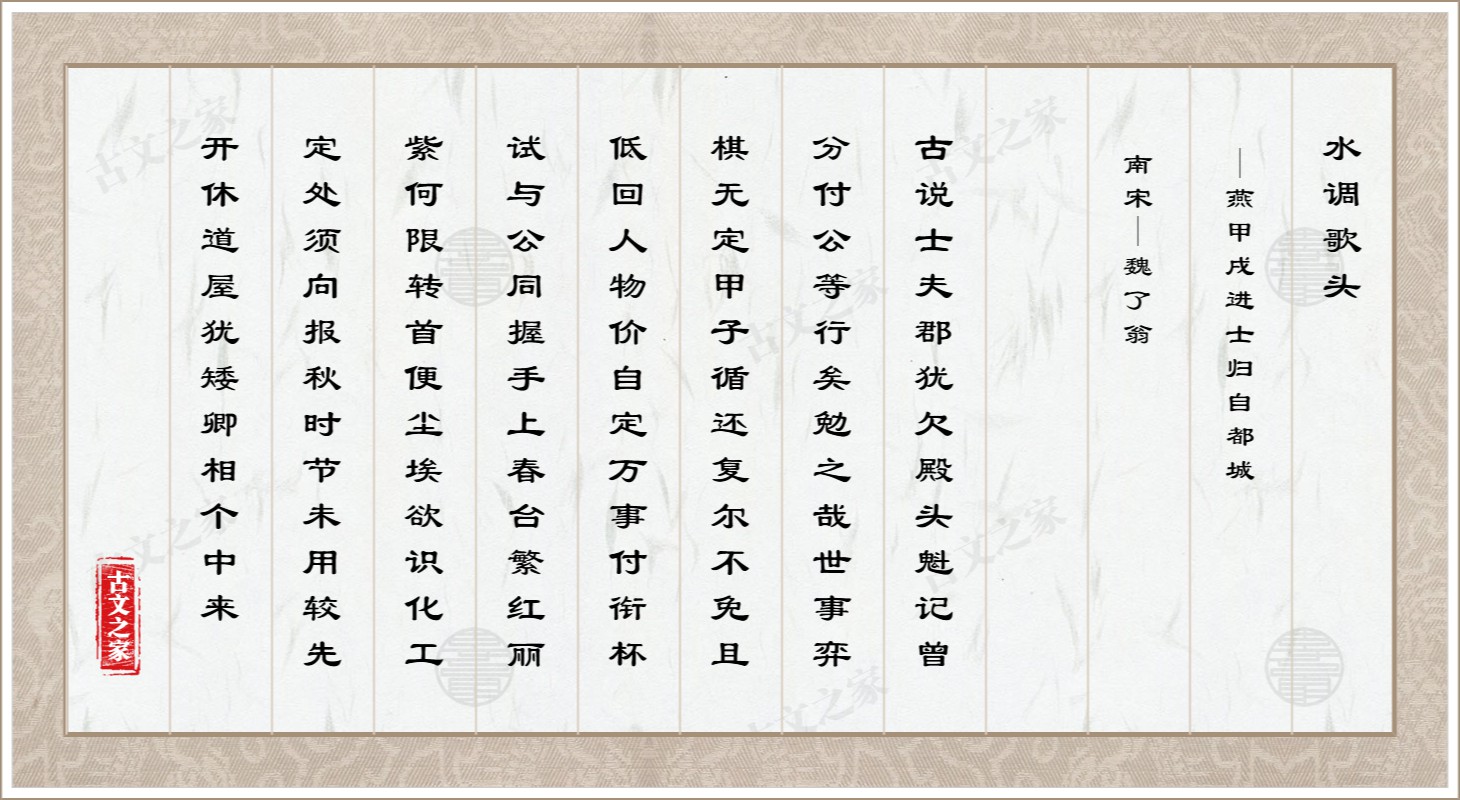 水调歌头
—燕甲戌进士归自都城
南宋—魏了翁
古说士夫郡犹欠殿头魁记曾
分付公等行矣勉之哉世事弈
棋无定甲子循还复尔不免且
低回人物价自定万事付衔杯
试与公同握手上春台繁红丽
紫何限转首便尘埃欲识化工
定处须向报秋时节未用较先
开休道屋犹矮卿相个中来
古文之家